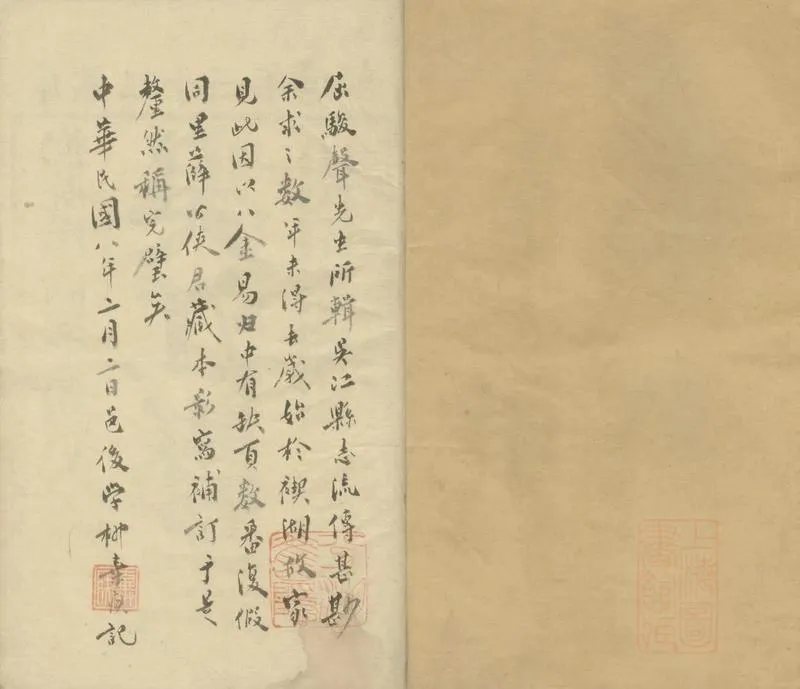 屈駿聲先生所輯吳江縣志流傳甚尠
余求之數年未得去歲始於禊湖故家
見此因以八金易归中有缺頁數番復假
同里薛公俠君藏本影寫補訂于是
釐然稱完璧矣
中華民國八年二月二日邑後学柳棄疾記